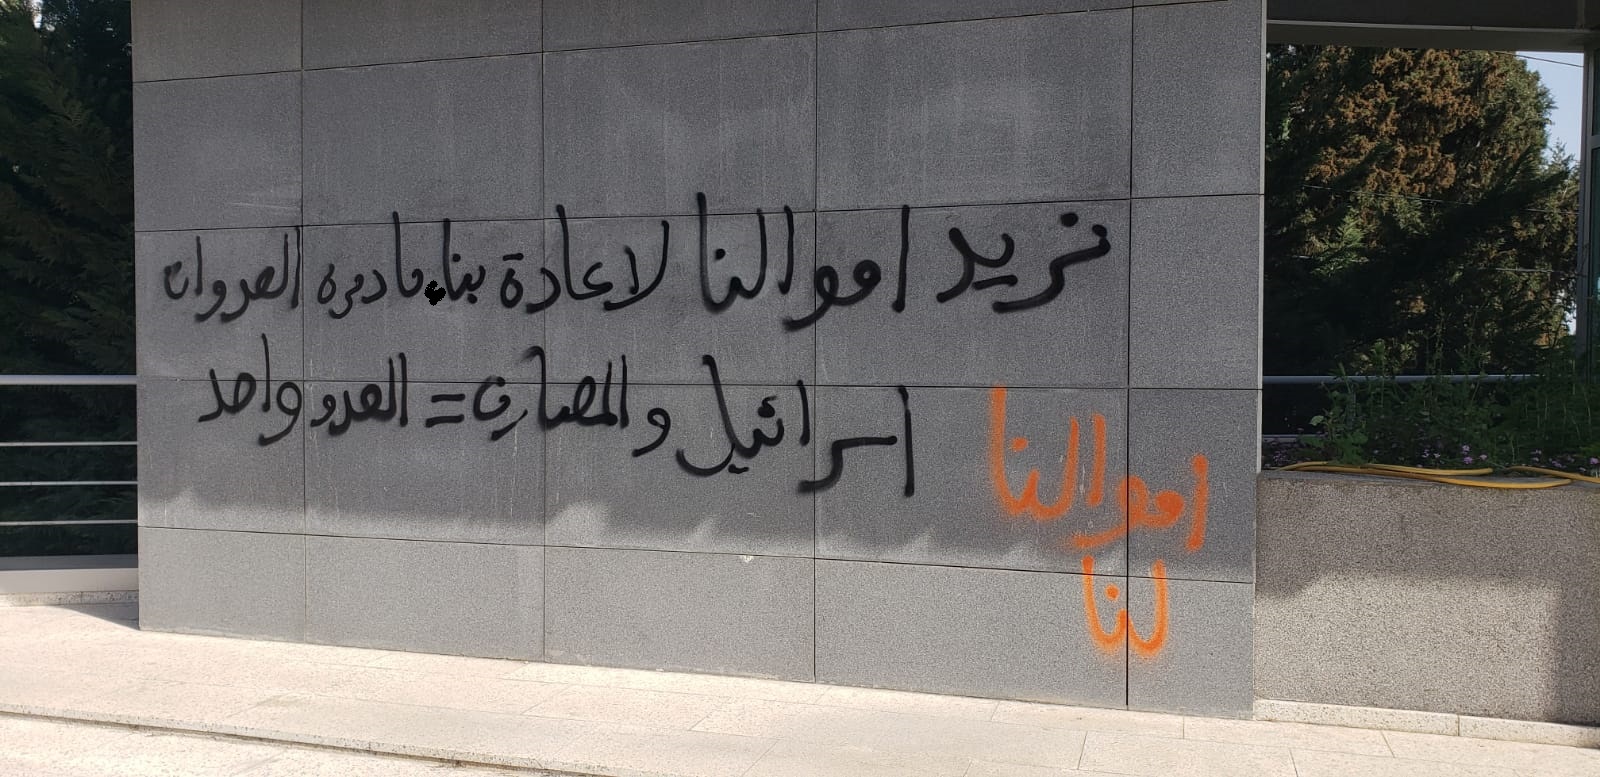 نريد اموالنا لاعادة بناء ما دمره العدوان
اسرائيل والمصارف = العدو واحد
اموالنا
لنا